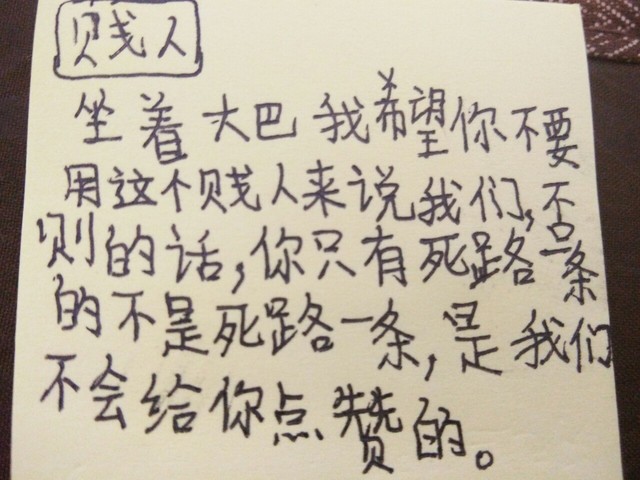 贱人
坐着大巴我希望你不要
用这个贱人来说我们,否
则的话,你只有死路一条
的不是死路一条,是我们
不会给你点赞的。